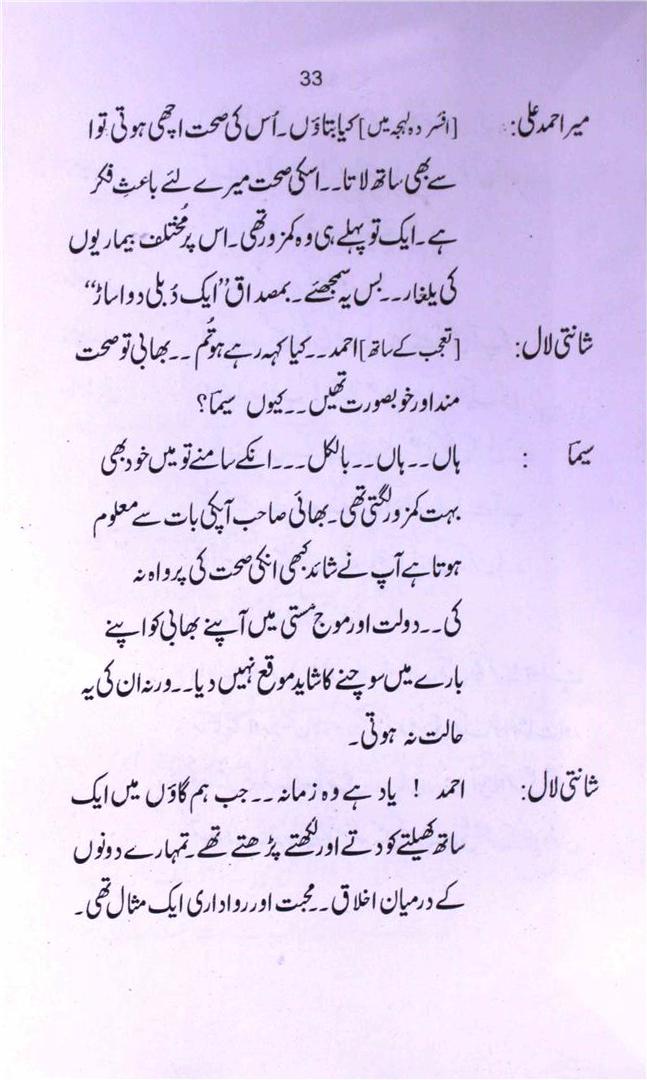 33
میر احمد علی: [افسردہ لہجہ میں] کیا بتاؤں۔ اُس کی صحت اچھی ہوتی تو ا
سے بھی ساتھ لاتا۔۔ اسکی صحت میرے لئے باعثِ فکر
ہے۔ ایک تو پہلے ہی وہ کمزور تھی۔ اس پر مُختلف بیماریوں
کی یلغار۔۔ بس یہ سمجھئے۔ بمصداق ”ایک دُبلی دو اساڑ“
شانتی لال: [تعجب کے ساتھ] احمد۔۔ کیا کہہ رہے ہو تُم۔۔ بھابی تو صحت
مند اور خوبصورت تھیں۔۔ کیوں سیماؔ؟
سیماؔ : ہاں۔۔ ہاں۔۔ بالکل۔۔۔ انکے سامنے تو میں خود بھی
بہت کمزور لگتی تھی۔ بھائی صاحب آپکی بات سے معلوم
ہوتا ہے آپ نے شائد کبھی انکی صحت کی پرواہ نہ
کی۔۔ دولت اور موج مستی میں آپنے بھابی کو اپنے
بارے میں سوچنے کا شاید موقع نہیں دیا۔۔ ورنہ ان کی یہ
حالت نہ ہوتی۔
شانتی لال: احمد ! یاد ہے وہ زمانہ۔۔ جب ہم گاؤں میں ایک
ساتھ کھیلتے کودتے اور لکھتے پڑھتے تھے۔ تمہارے دونوں
کے درمیان اخلاق۔۔ محبت اور رواداری ایک مثال تھی۔